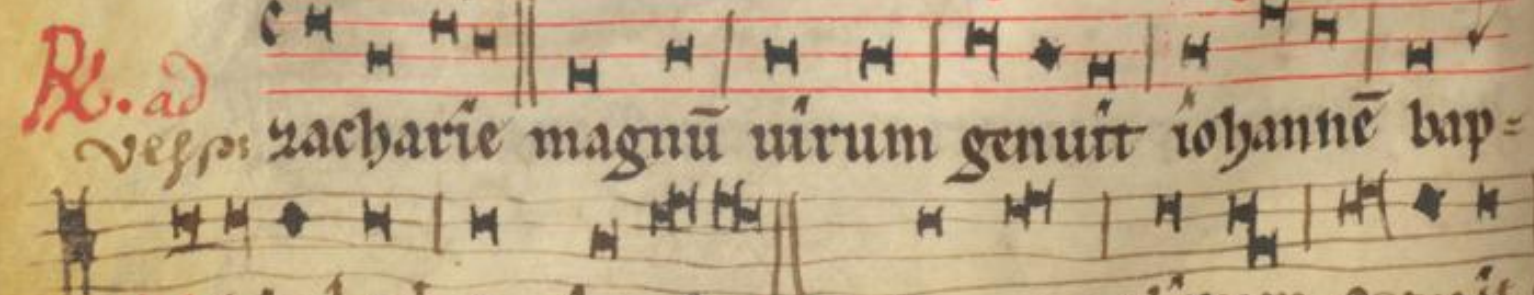 ℟. ad zacharie magnū uirum genuit iohannē bap=
vesp: